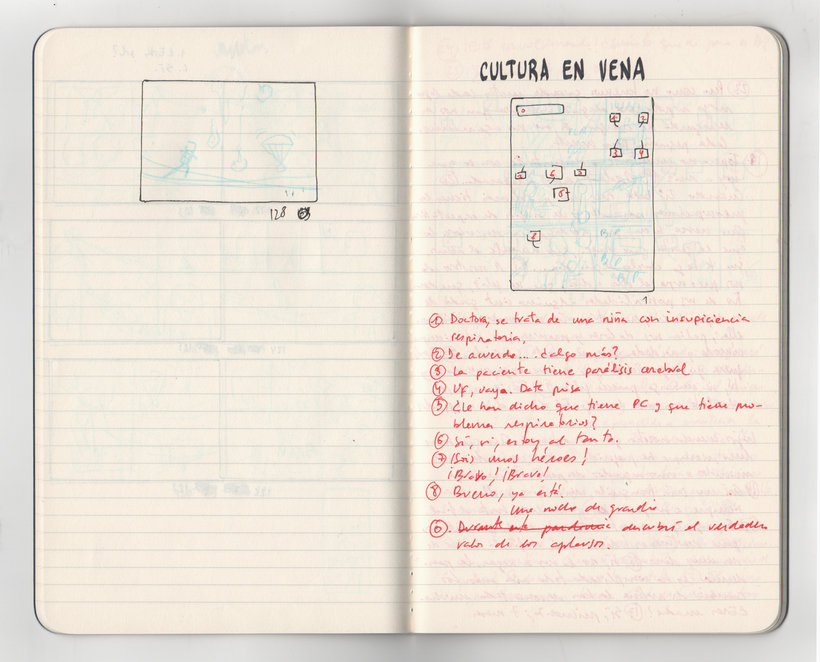 128
CULTURA EN VENA
0
1 2
3 4
5 6 7
8
BIP
BIP
BIP
1
① Doctora, se trata de una niña con insuficiencia
respiratoria.
② De acuerdo... ¿algo más?
③ La paciente tiene parálisis cerebral
④ Uf, vaya. Date prisa
⑤ ¿Le han dicho que tiene PC y que tiene pro-
blema respiratorios?
⑥ Sí, sí, estoy al tanto.
⑦ ¡Sois unos héroes!
¡Bravo! ¡Bravo!
⑧ Bueno, ya está.
Una noche de guardia
⓪. Durante esta pandemia descubrí el verdadero
valor de los aplausos.